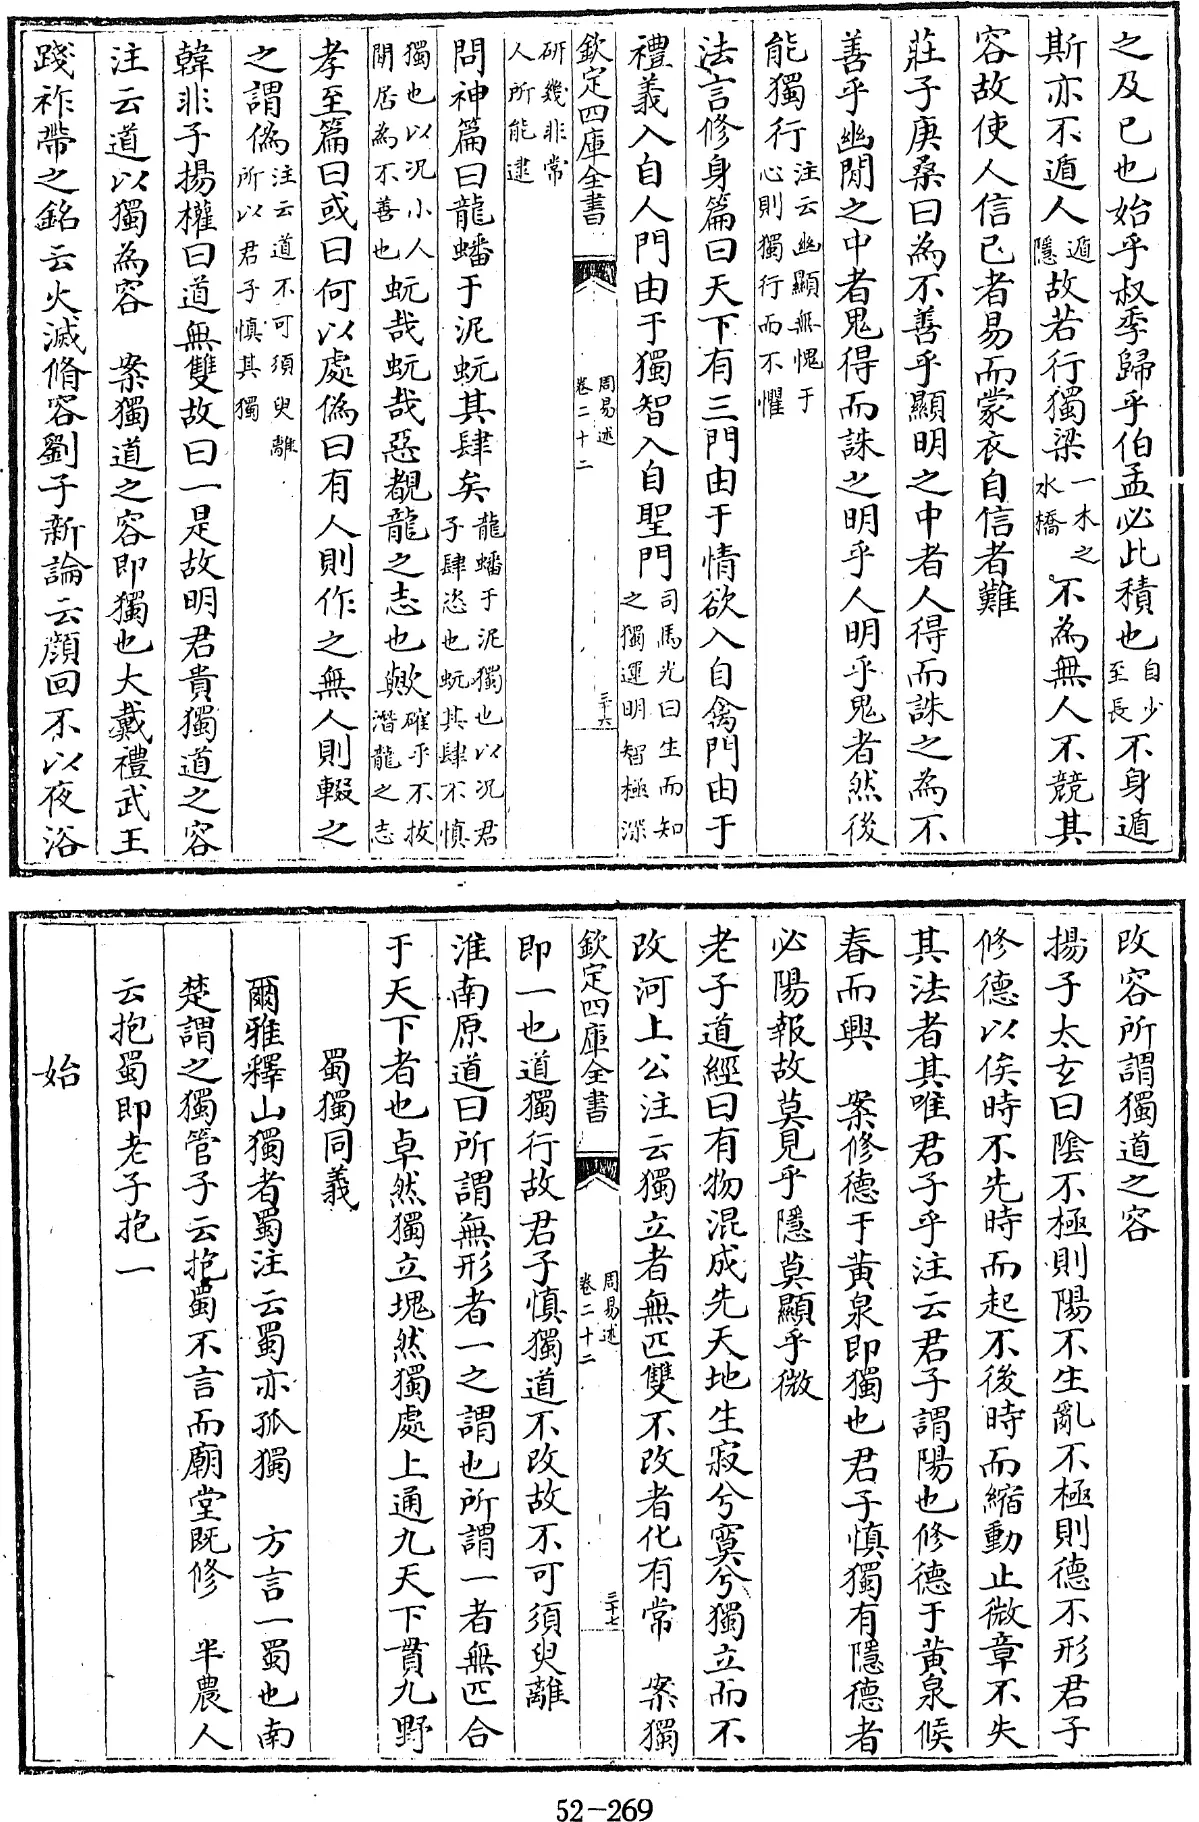 之及已也始乎叔季歸乎伯孟必此積也自少至長不身遁
斯亦不遁人遁隱故若行獨梁一木之水橋不為無人不競其
容故使人信已者易而蒙衣自信者難
莊子庚桑曰為不善乎顯明之中者人得而誅之為不
善乎幽閒之中者鬼得而誅之明乎人明乎鬼者然後
能獨行注云幽顯無愧于心則獨行而不懼
法言修身篇曰天下有三門由于情欲入自禽門由于
禮義入自人門由于獨智入自聖門司馬光曰生而知之獨運明智極深
欽定四庫全書
周易述
卷二十二
三十六
研幾非常人所能逮
問神篇曰龍蟠于泥蚖其肆矣龍蟠于泥獨也以況君子肆恣也蚖其肆不慎
獨也以況小人閒居為不善也蚖哉蚖哉惡覩龍之志也歟確乎不拔潛龍之志
孝至篇曰或曰何以處偽曰有人則作之無人則輟之
之謂偽注云道不可須臾離所以君子慎其獨
韓非子揚權曰道無雙故曰一是故明君貴獨道之容
注云道以獨為容　案獨道之容即獨也大戴禮武王
踐祚帶之銘云火滅脩容劉子新論云顏回不以夜浴
改容所謂獨道之容
揚子太玄曰陰不極則陽不生亂不極則德不形君子
修德以俟時不先時而起不後時而縮動止微章不失
其法者其唯君子乎注云君子謂陽也修德于黄泉候
春而興　案修德于黄泉即獨也君子慎獨有隱德者
必陽報故莫見乎隱莫顯乎微
老子道經曰有物混成先天地生寂兮寞兮獨立而不
改河上公注云獨立者無匹雙不改者化有常　案獨
欽定四庫全書
周易述
卷二十二
三十七
即一也道獨行故君子慎獨道不改故不可須臾離
淮南原道曰所謂無形者一之謂也所謂一者無匹合
于天下者也卓然獨立塊然獨處上通九天下貫九野
蜀獨同義
爾雅釋山獨者蜀注云蜀亦孤獨　方言一蜀也南
楚謂之獨管子云抱蜀不言而廟堂既修　半農人
云抱蜀即老子抱一
始
52-269